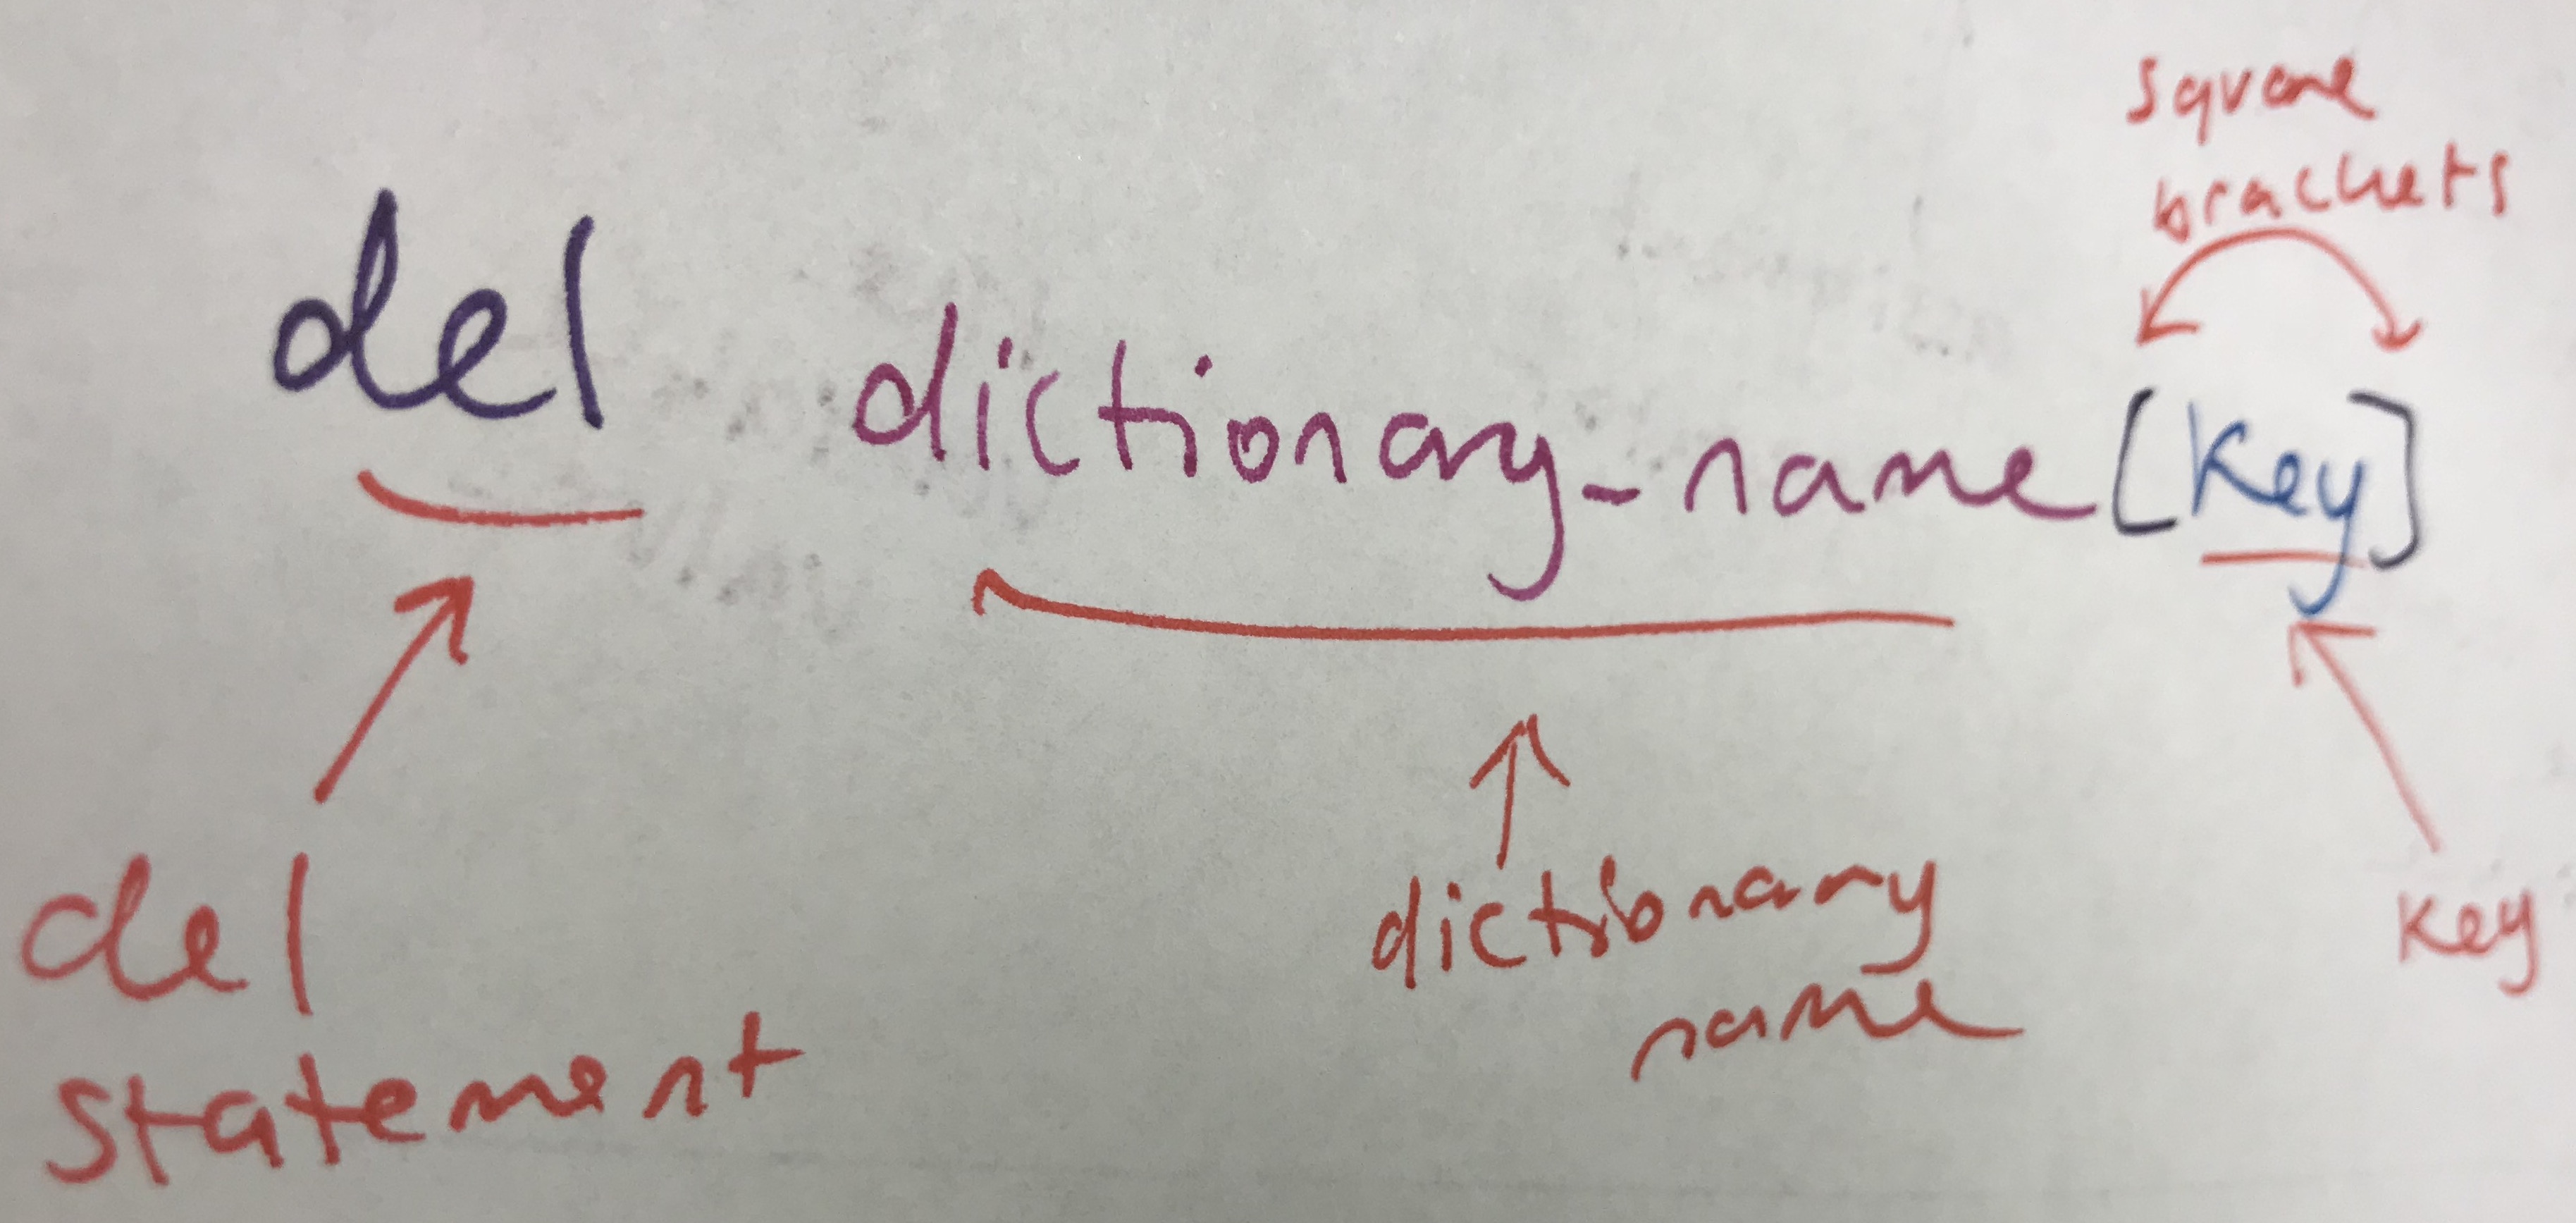 square
brackets
del dictionary_name[key]
del
statement
dictionary
name
key